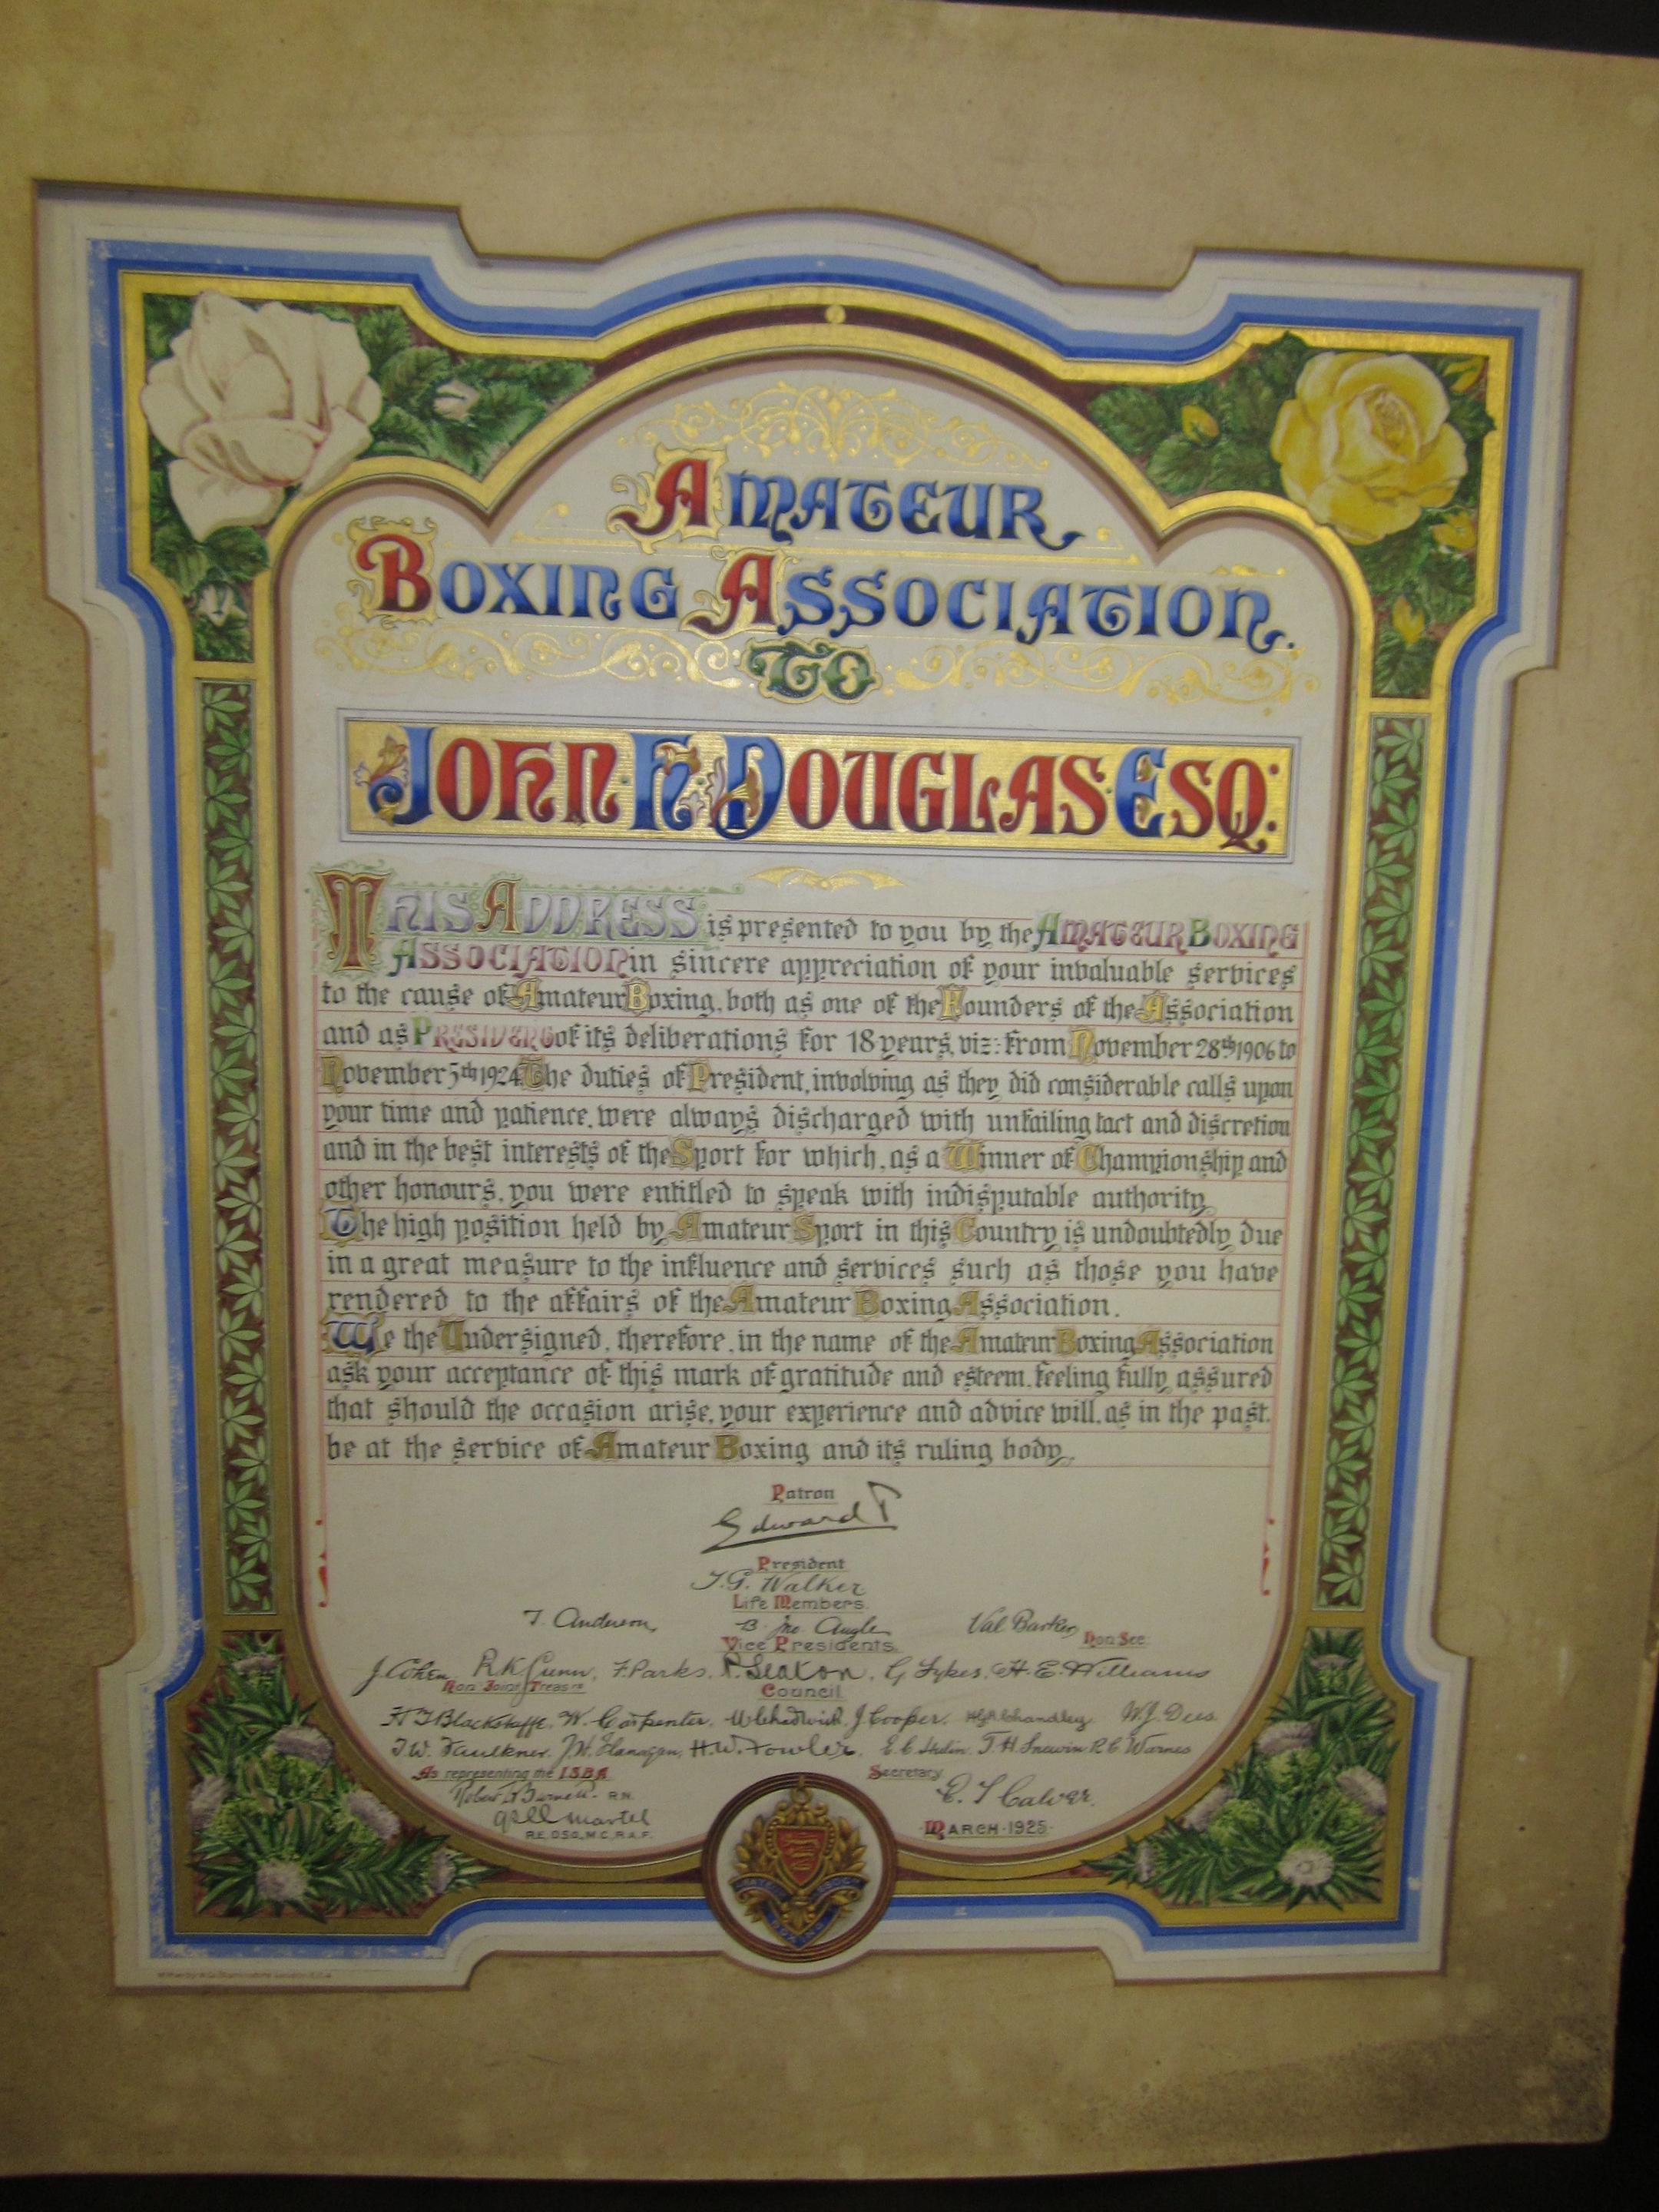 AMATEUR
BOXING ASSOCIATION.
TO
JOHN·H·DOUGLAS·ESQ:
THIS ADDRESS is presented to you by the AMATEUR BOXING
ASSOCIATION in sincere appreciation of your invaluable services
to the cause of Amateur Boxing, both as one of the Founders of the Association
and as PRESIDENT of its deliberations for 18 years, viz:- from November 28th 1906 to
November 5th 1924. The duties of President, involving as they did considerable calls upon
your time and patience, were always discharged with unfailing tact and discretion
and in the best interests of the Sport for which, as a Winner of Championship and
other honours, you were entitled to speak with indisputable authority.
The high position held by Amateur Sport in this Country is undoubtedly due
in a great measure to the influence and services such as those you have
rendered to the affairs of the Amateur Boxing Association.
We the Undersigned, therefore, in the name of the Amateur Boxing Association
ask your acceptance of this mark of gratitude and esteem, feeling fully assured
that should the occasion arise, your experience and advice will, as in the past,
be at the service of Amateur Boxing and its ruling body.
Patron
Edward P
President
T. G. Walker
Life Members
T. Anderson, B. Jno. Angle Val Barker, Hon Sec:
Vice Presidents
J. Cohen, R. K. Gunn, F. Parks, P. Seaton, G. Sykes, H. E. Williams
Hon Joint Treasrs
Council
Blackstaffe, W. Carpenter, W Chadwick, J. Cooper, Chandley W. J. Dees
J. W. Faulkner, Flanagan, H. W. Fowler, E. C. T. H. Snewin R. C. Warnes
As representing the I.S.B.A
Secretary
Robert R.N.
E. T Calver.
Martel
R.E, D.S.O, M.C, R.A.F.
MARCH·1925·